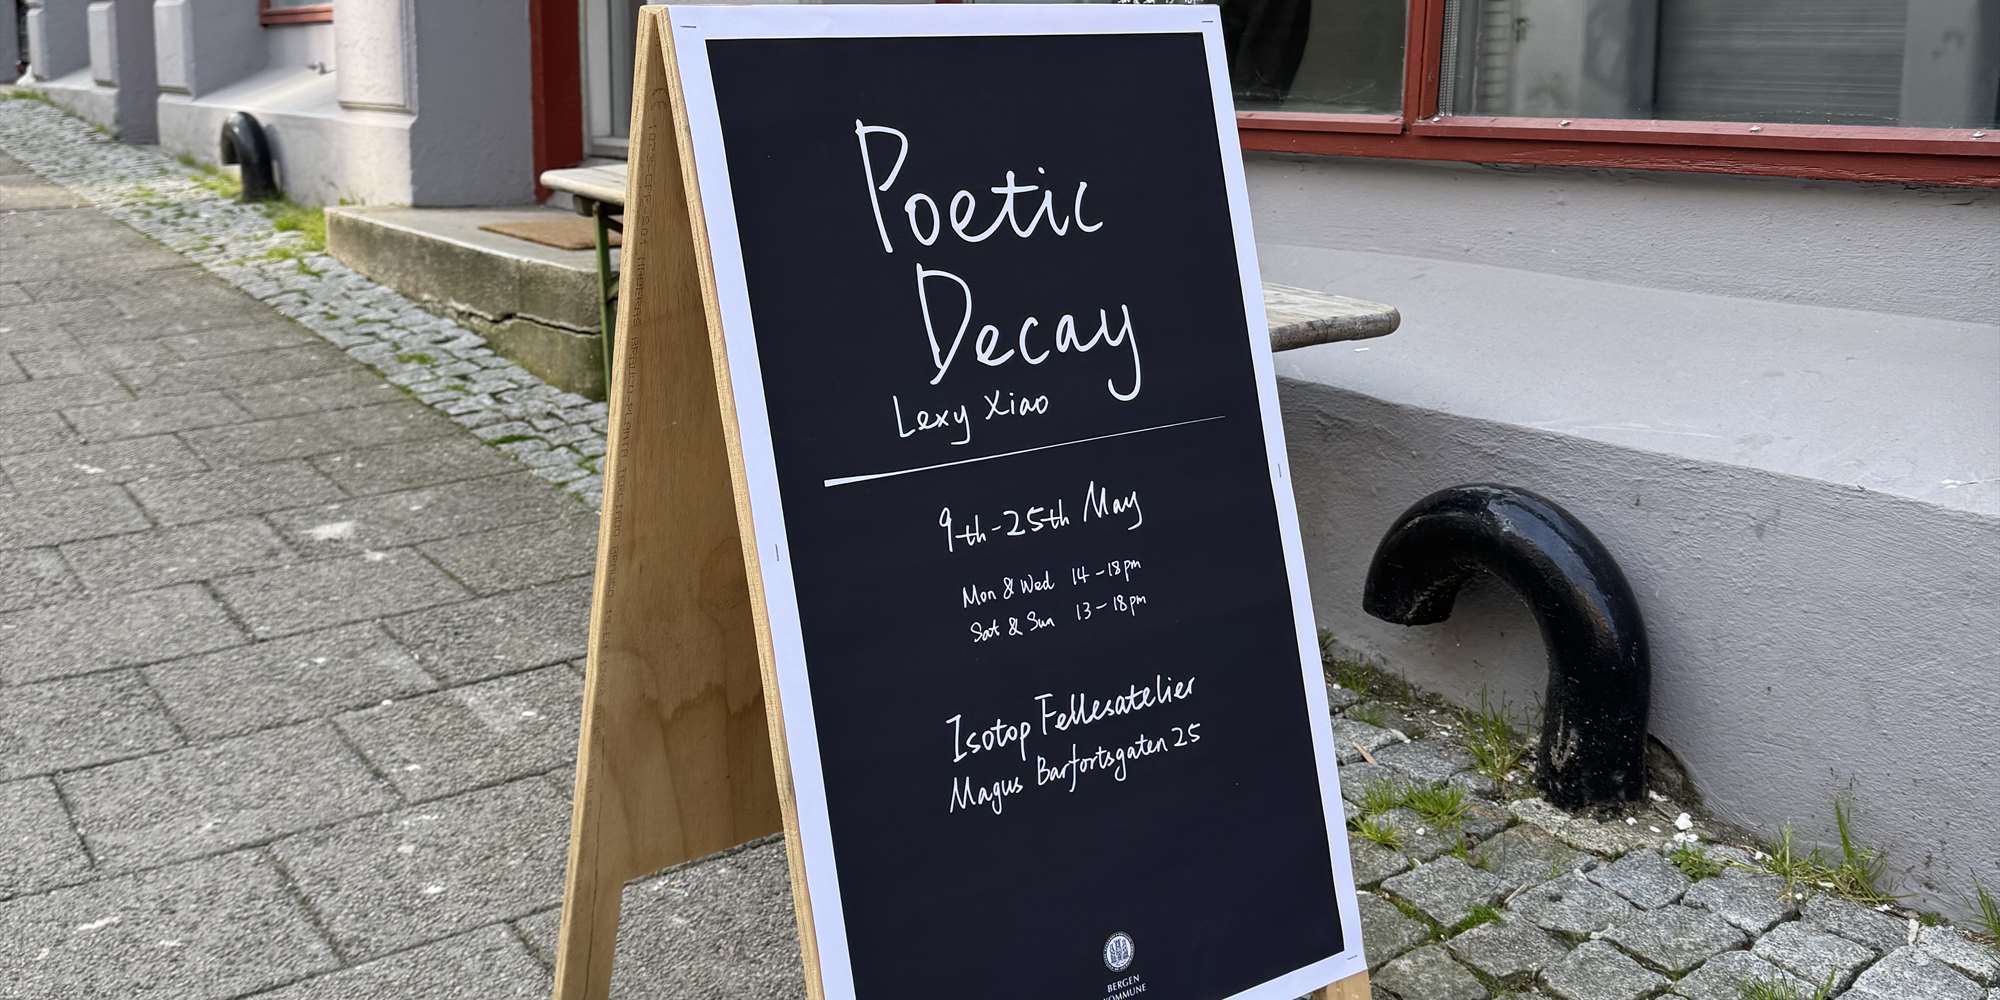 Poetic
Decay
Lexy Xiao
9th-25th May
Mon & Wed 14-18pm
Sat & Sun 13-18pm
Isotop Fellesatelier
Magus Barfortsgaten 25
BERGEN
KOMMUNE